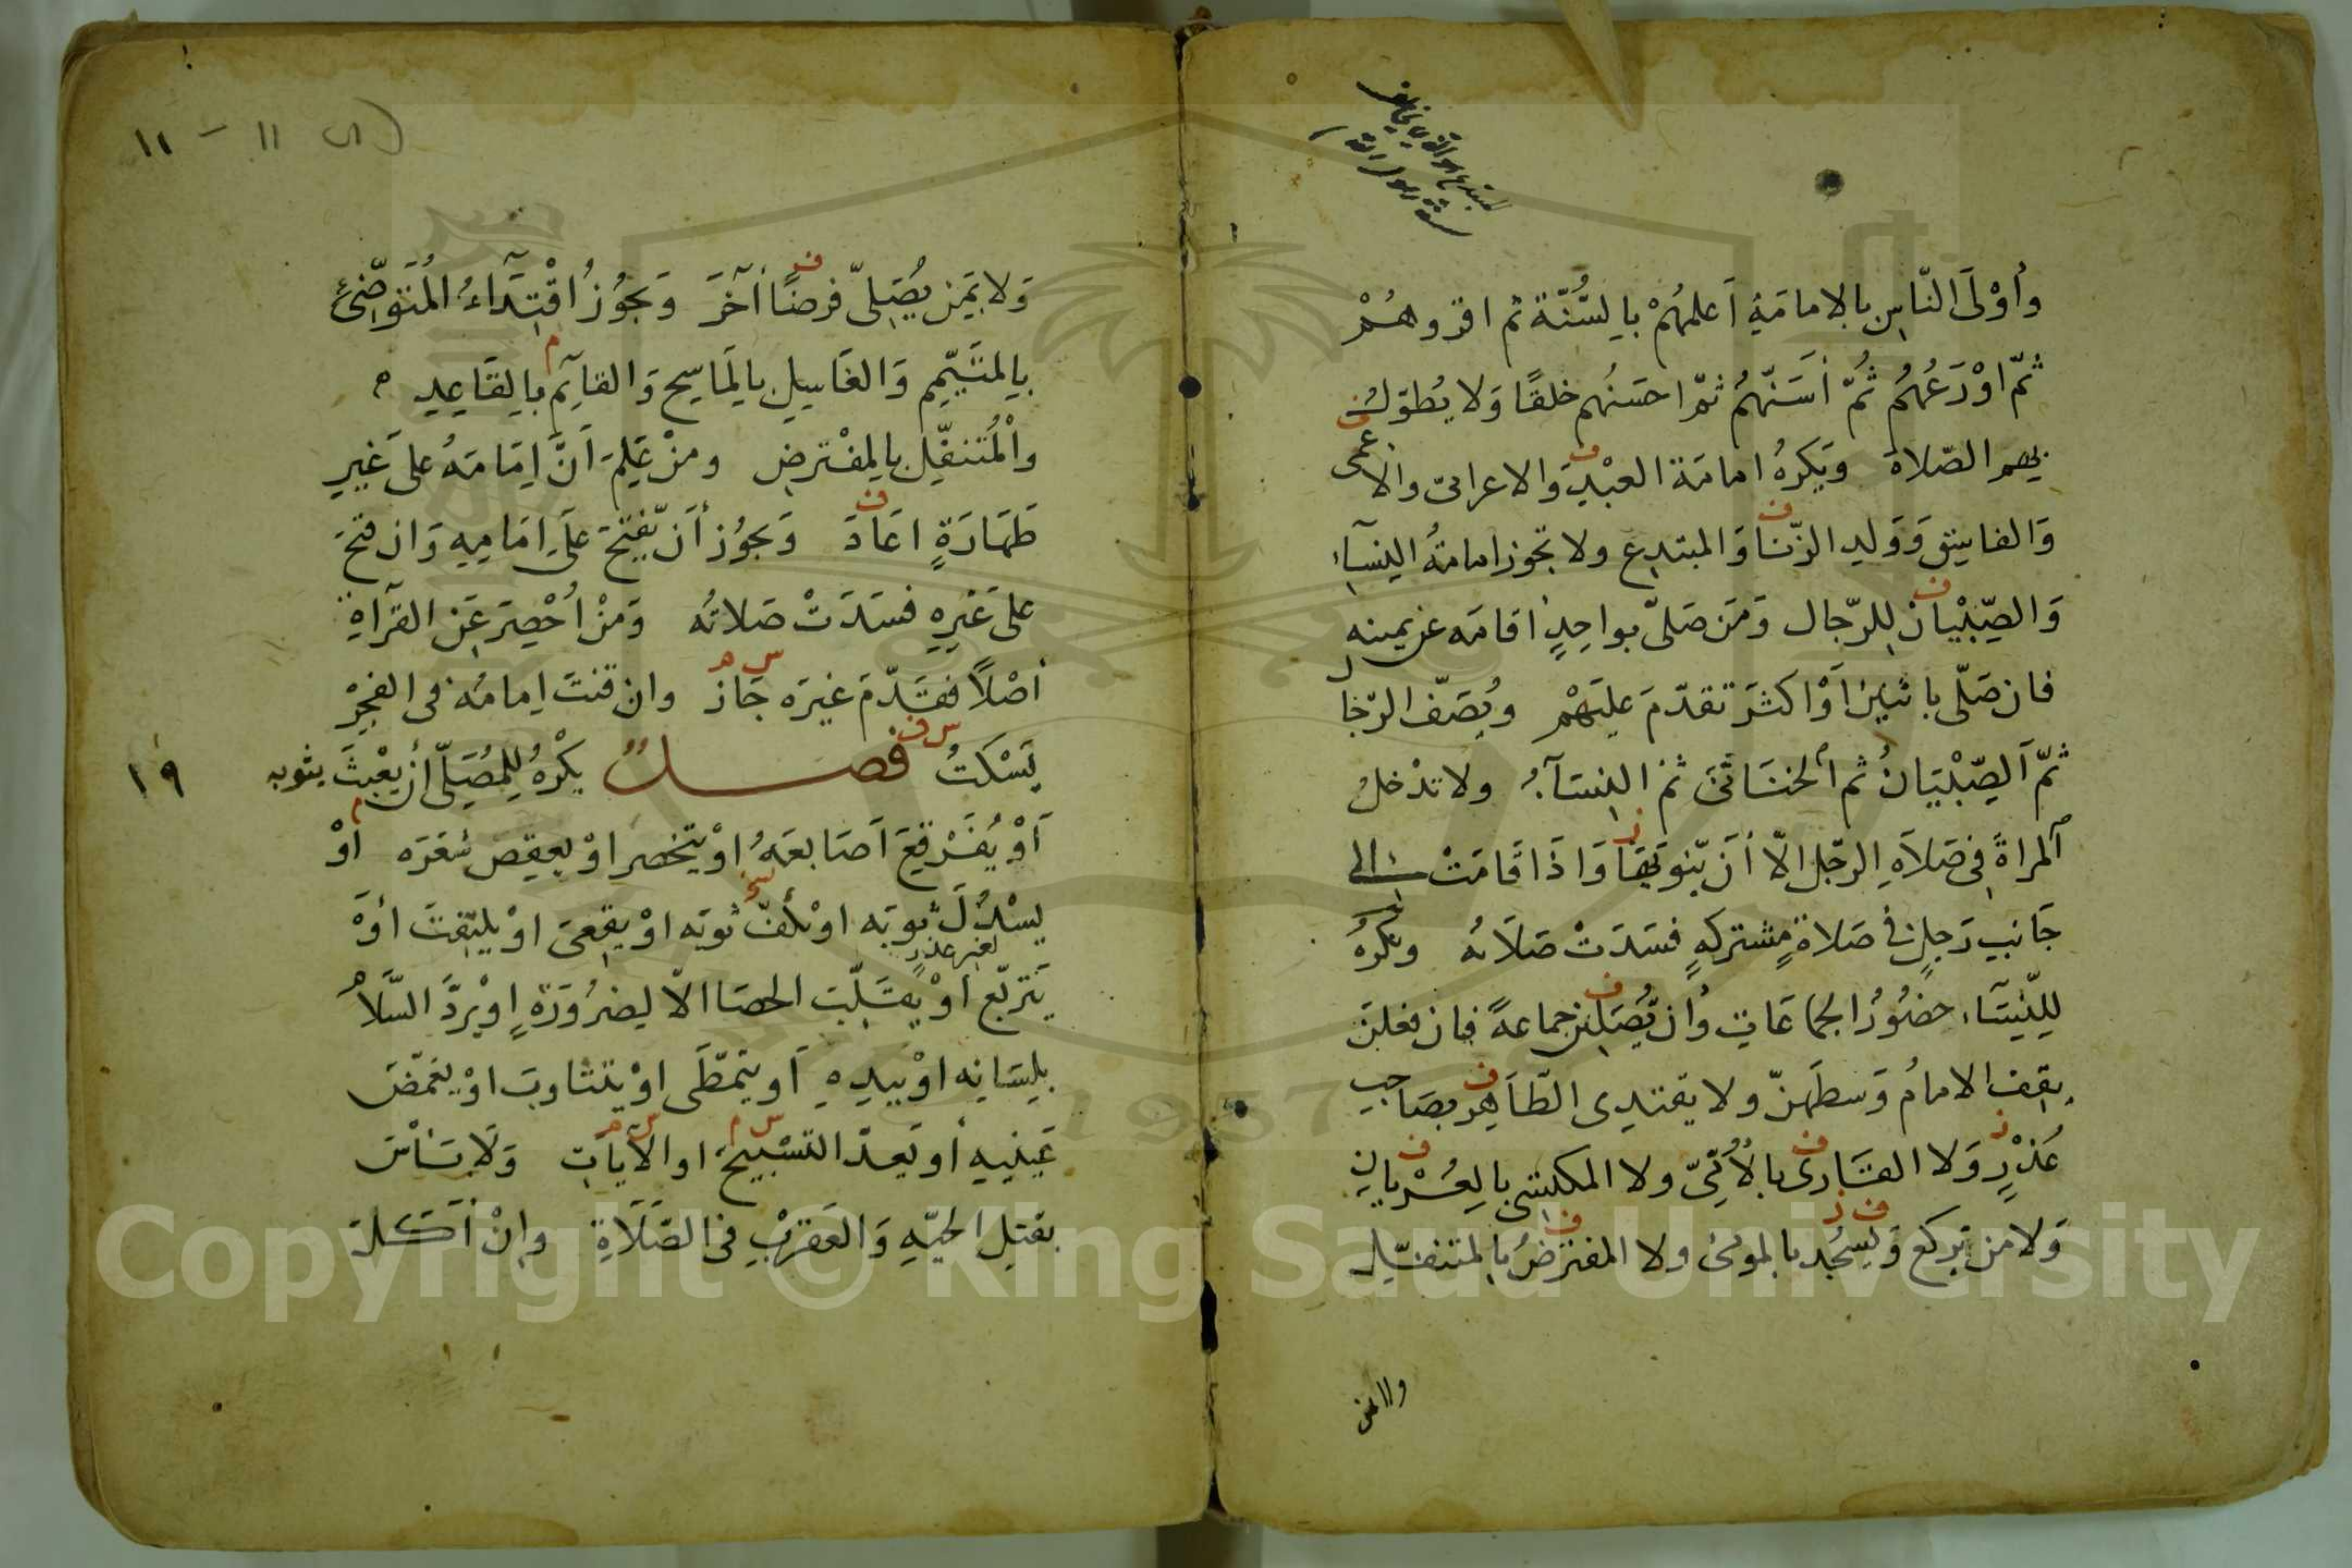 المبتدع هو الذي يخالف
سنة رسول الله
وأوْلَى النّاسِ بالامامَةِ اَعلمهُمْ بِالسُّنّة ثم اقروهُمْ
ثمّ اوْرَعُهُم ثُمّ أسَنّهُم ثمّ احسَنُهم خلقًا وَلا يُطوّل
بهم الصّلاة ويَكرهُ امامَة العبْدِ وَالاعرابىّ والاعمى
وَالفاسِقِ وَوَلدِ الزّنا وَالمبتدِع ولا تجوز امامةُ النِسآء
وَالصِّبْيَان لِلرّجال وَمَن صَلّى بواحِدٍ اقامَه عن يمينه
فان صَلّى باثنين اَوْ اكثَر تقدّمَ عليَهْم ويُصَفّ الرّجال
ثمّ اَلصِّبْيَانُ ثم الخنَاثَى ثمّ النِسَآءُ ولا تدْخلُ
المراةُ فى صَلاَةِ الرّجل الّا أَن ينويَهَا وَاذَا قَامَتْ الى
جَانِب رَجلٍ فى صَلاةٍ مشتركهٍ فسَدَتْ صَلَاتهُ ويكرهُ
لِلنّسَآء حضُورُ الجماعَاتِ وَان يُصَلين جماعةً فان فعلن
يقف الامامُ وَسطَهنّ ولا يقتدى الطَّاهِر بصَاحِب
عُذْرٍ وَلا القَارىُ بالأُمّىّ ولا المكتسى بالعُرْيان
وَلا من يَركع وَيسجُد بالمومئ ولا المفترضُ بالمتنفّل
ولا من
١١ - ١١
وَلا بمَن يُصَلِّى فرضًا أخَرَ وَيجُوزُ اقْتِدَآءُ المُتَوَضِّئ
بِالمتَيمّمِ وَالغَاسِلِ بِالمَاسِحِ وَالقآئِم بِالقَاعِدِ
وَالْمُتنفِّل بِالمفْترضِ ومنْ عَلِمَ اَنَّ اِمَامَهُ على غَيرِ
طَهَارَةٍ اعَادَ وَيجوُز أَن يَّفتَحَ عَلَى اِمَامِهِ وَان فتحَ
على غَيرِهِ فسَدَتْ صَلاتُه وَمَنْ اُحْصِرَ عَنِ القرآةِ
أصْلاً فقدّمَ غيرَه جَازَ وان قنتَ اِمامُه فى الفجْرِ
يَسْكتُ فصل يكْرَهُ لِلمُصَلِّى أن يعْبثَ بثوبه
١٩
أَوْ يُفَرْقِعَ اَصَابعَهُ اوْ يتخصر اوْ يعقِصَ شعَرَه اَوْ
يسْدُلَ ثوبَه اوْ يكُفّ ثوبَه اوْ يقعِىَ اوْ يلتفِتَ أوْ
لغير عذر
يَترَبّع أوْ يقَلّبَ الحصَا الّا لِضرُورَةٍ اوْ يردَّ السَّلامُ
بلِسَانِه اوْ بيدِهِ أَو يتمطّى اوْ يتثاوبَ اوْ يغمّضَ
عَينيهِ أو يَعدّ التسْبيحَ او الآيَاتِ وَلَا بَأسَ
بقتلِ الحيّهِ وَالعقرَبِ فى الصَّلَاةِ واِنْ أكَلَ